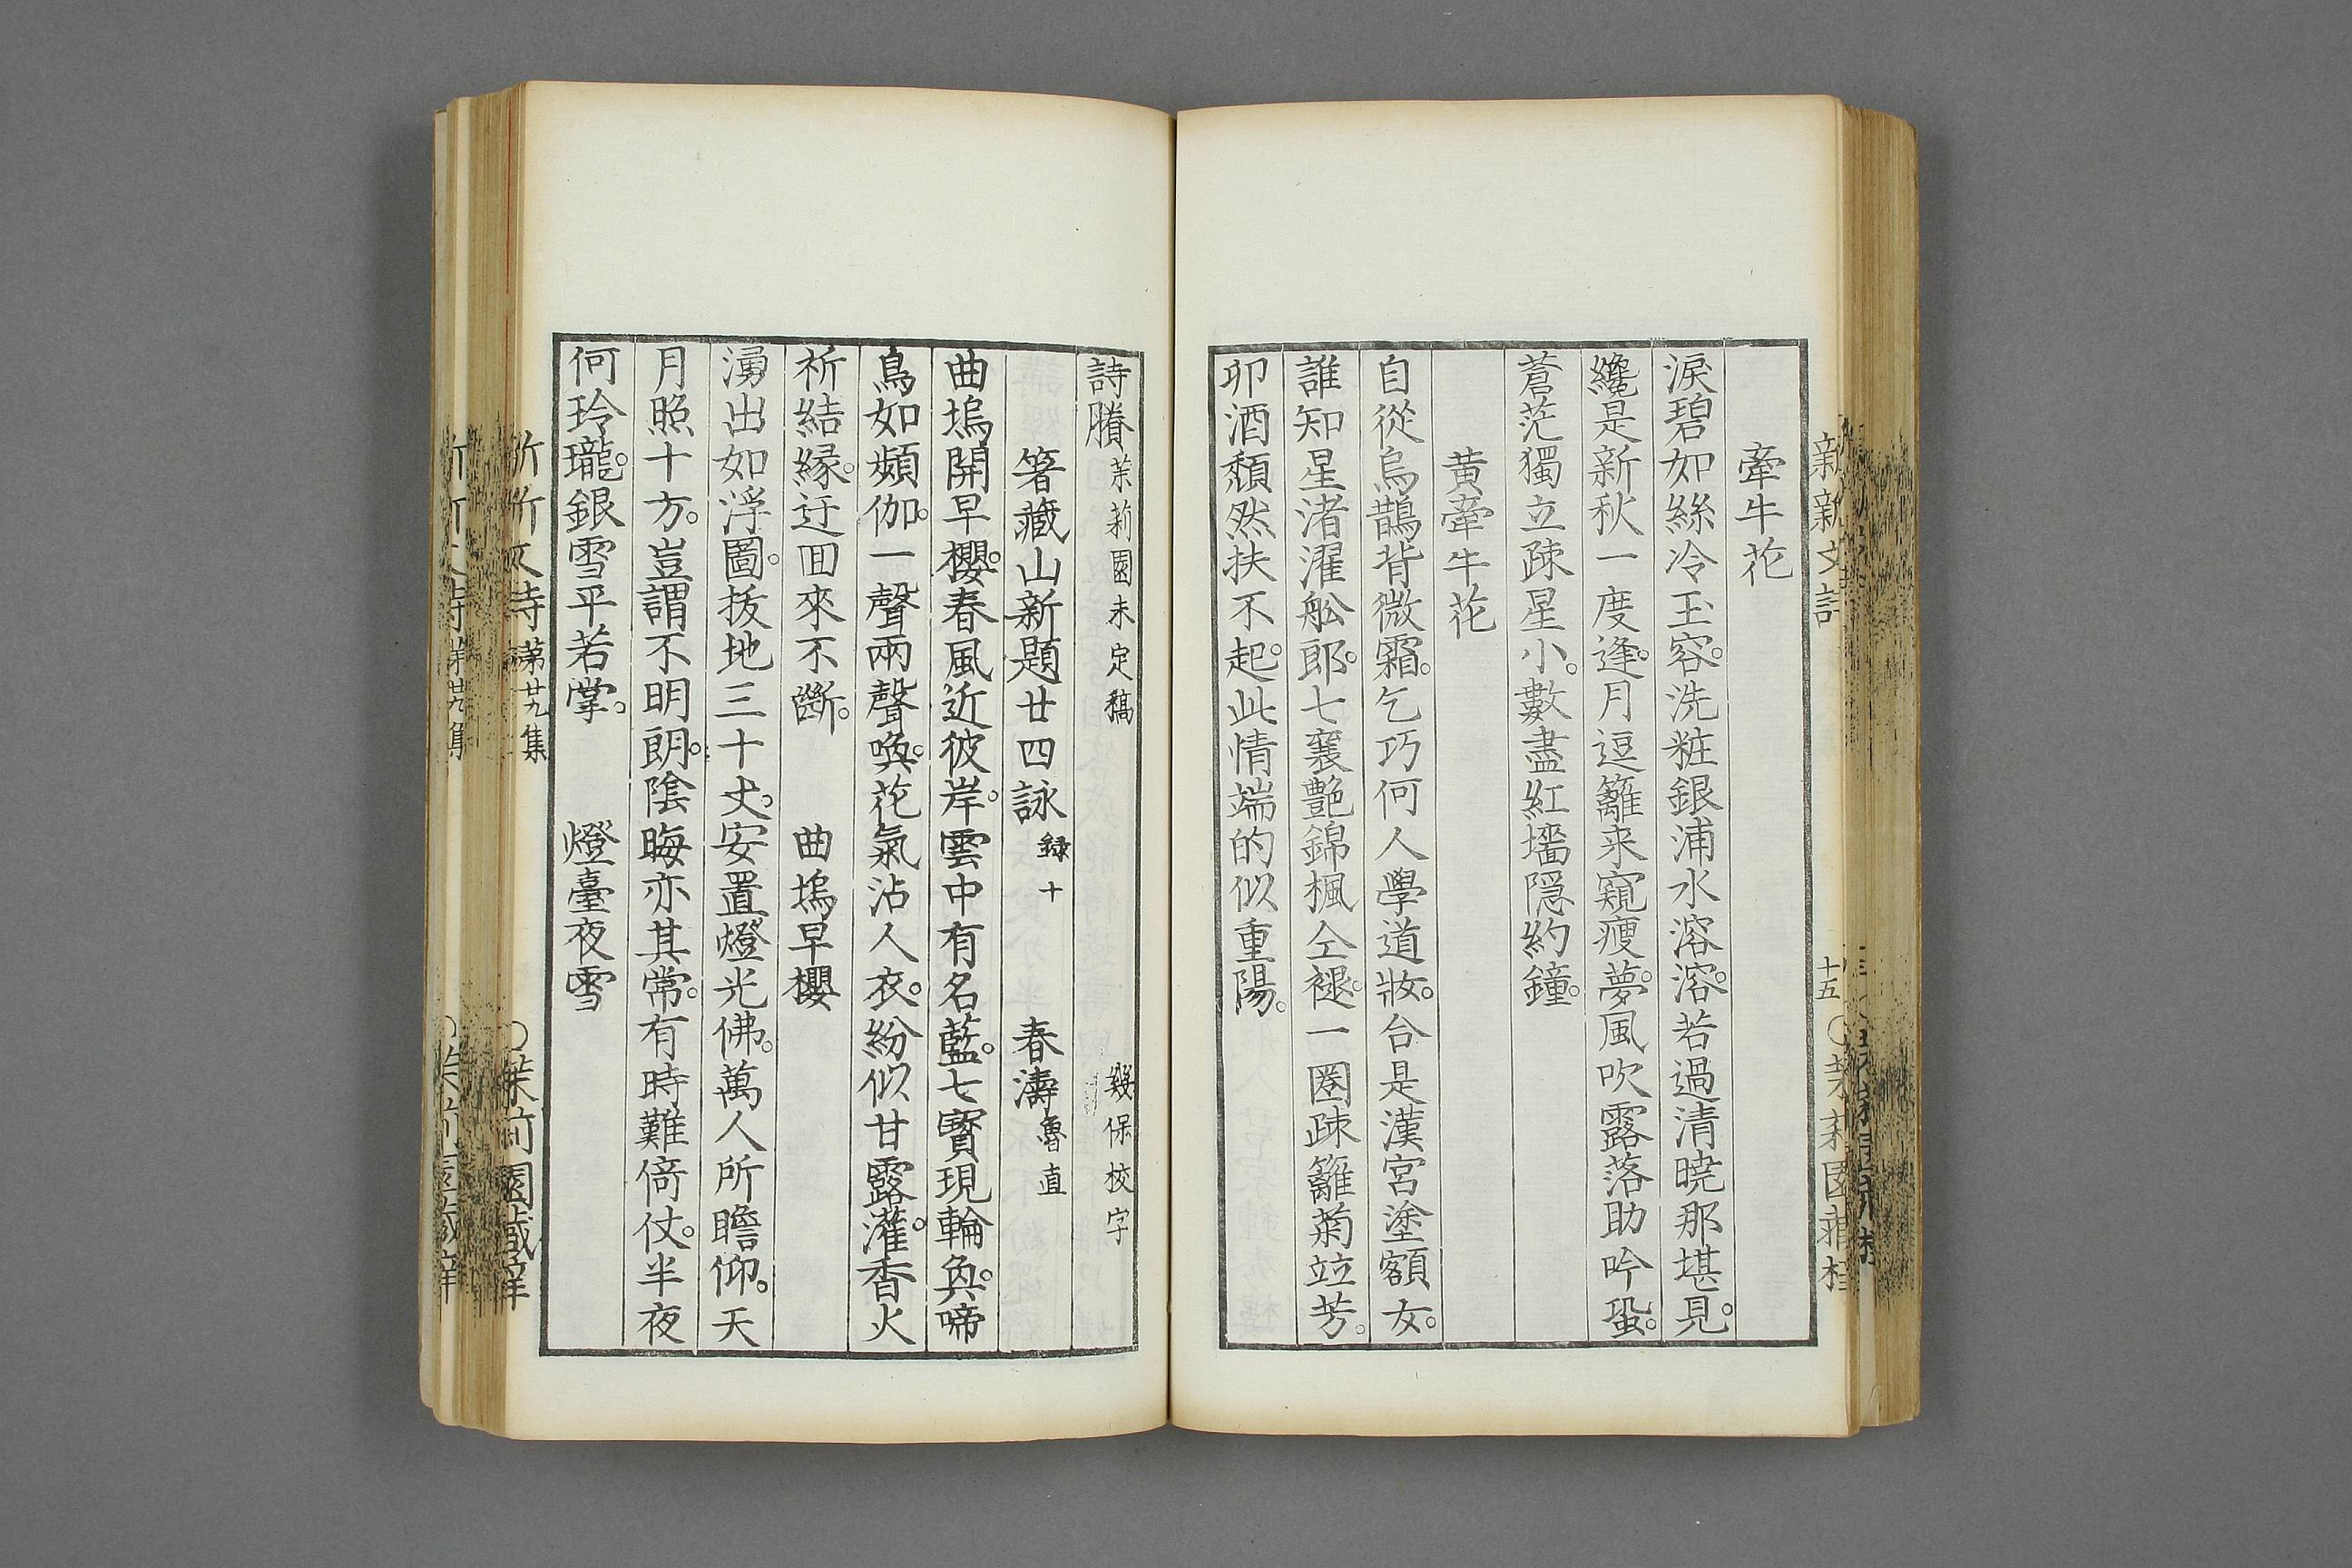 牽牛花
淚碧如絲冷玉容。洗粧銀浦水溶溶。若過清曉那堪見。
纔是新秋一度逢。月逗籬来窺瘦夢。風吹露落助吟蛩。
蒼茫獨立疎星小。數盡紅墻隱約鐘。
黄牽牛花
自從烏鵲背微霜。乞巧何人學道妝。合是漢宮塗額女。
誰知星渚濯舩郎。七襄艶錦楓仝褪。一圈疎籬菊竝芳。
卯酒頽然扶不起。此情端的似重陽。
詩賸 茉莉園未定稿 幾保校字
箬藏山新題廿四詠 録十 春濤魯直
曲塢開早櫻。春風近彼岸。雲中有名藍。七寳現輪奐。啼
鳥如頻伽。一聲兩聲喚。花氣沾人衣。紛似甘露灌。香火
祈結縁。迂回來不斷。 曲塢早櫻
湧出如浮圖。拔地三十丈。安置燈光佛。萬人所瞻仰。天
月照十方。豈謂不明朗。陰晦亦其常。有時難倚仗。半夜
何玲瓏。銀雪平若掌。 燈臺夜雪
新新文詩
十五
第廿九集